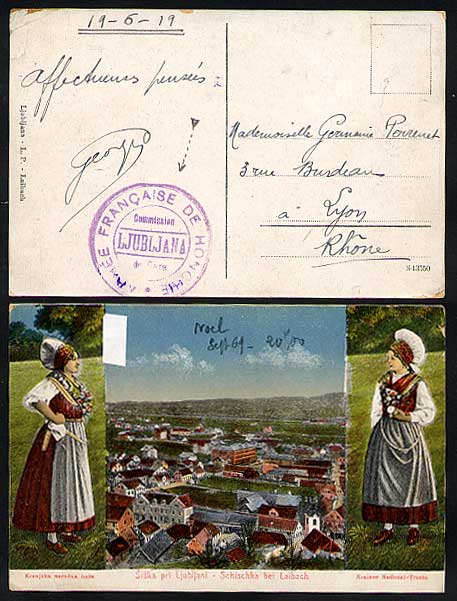 19-6-19
affectueuses pensées
Ljubljana - L. P. - Laibach
ARMÉE FRANÇAISE DE HONGRIE *
Commission
LJUBLJANA
de Gare
Mademoiselle Germaine
3 rue Burdeau
à Lyon
Rhône
N 13550
Noel
Sept 69 -
Kranjska narodna noša
Šiška pri Ljubljani - Schischka bei Laibach
Krainer National-Tracht